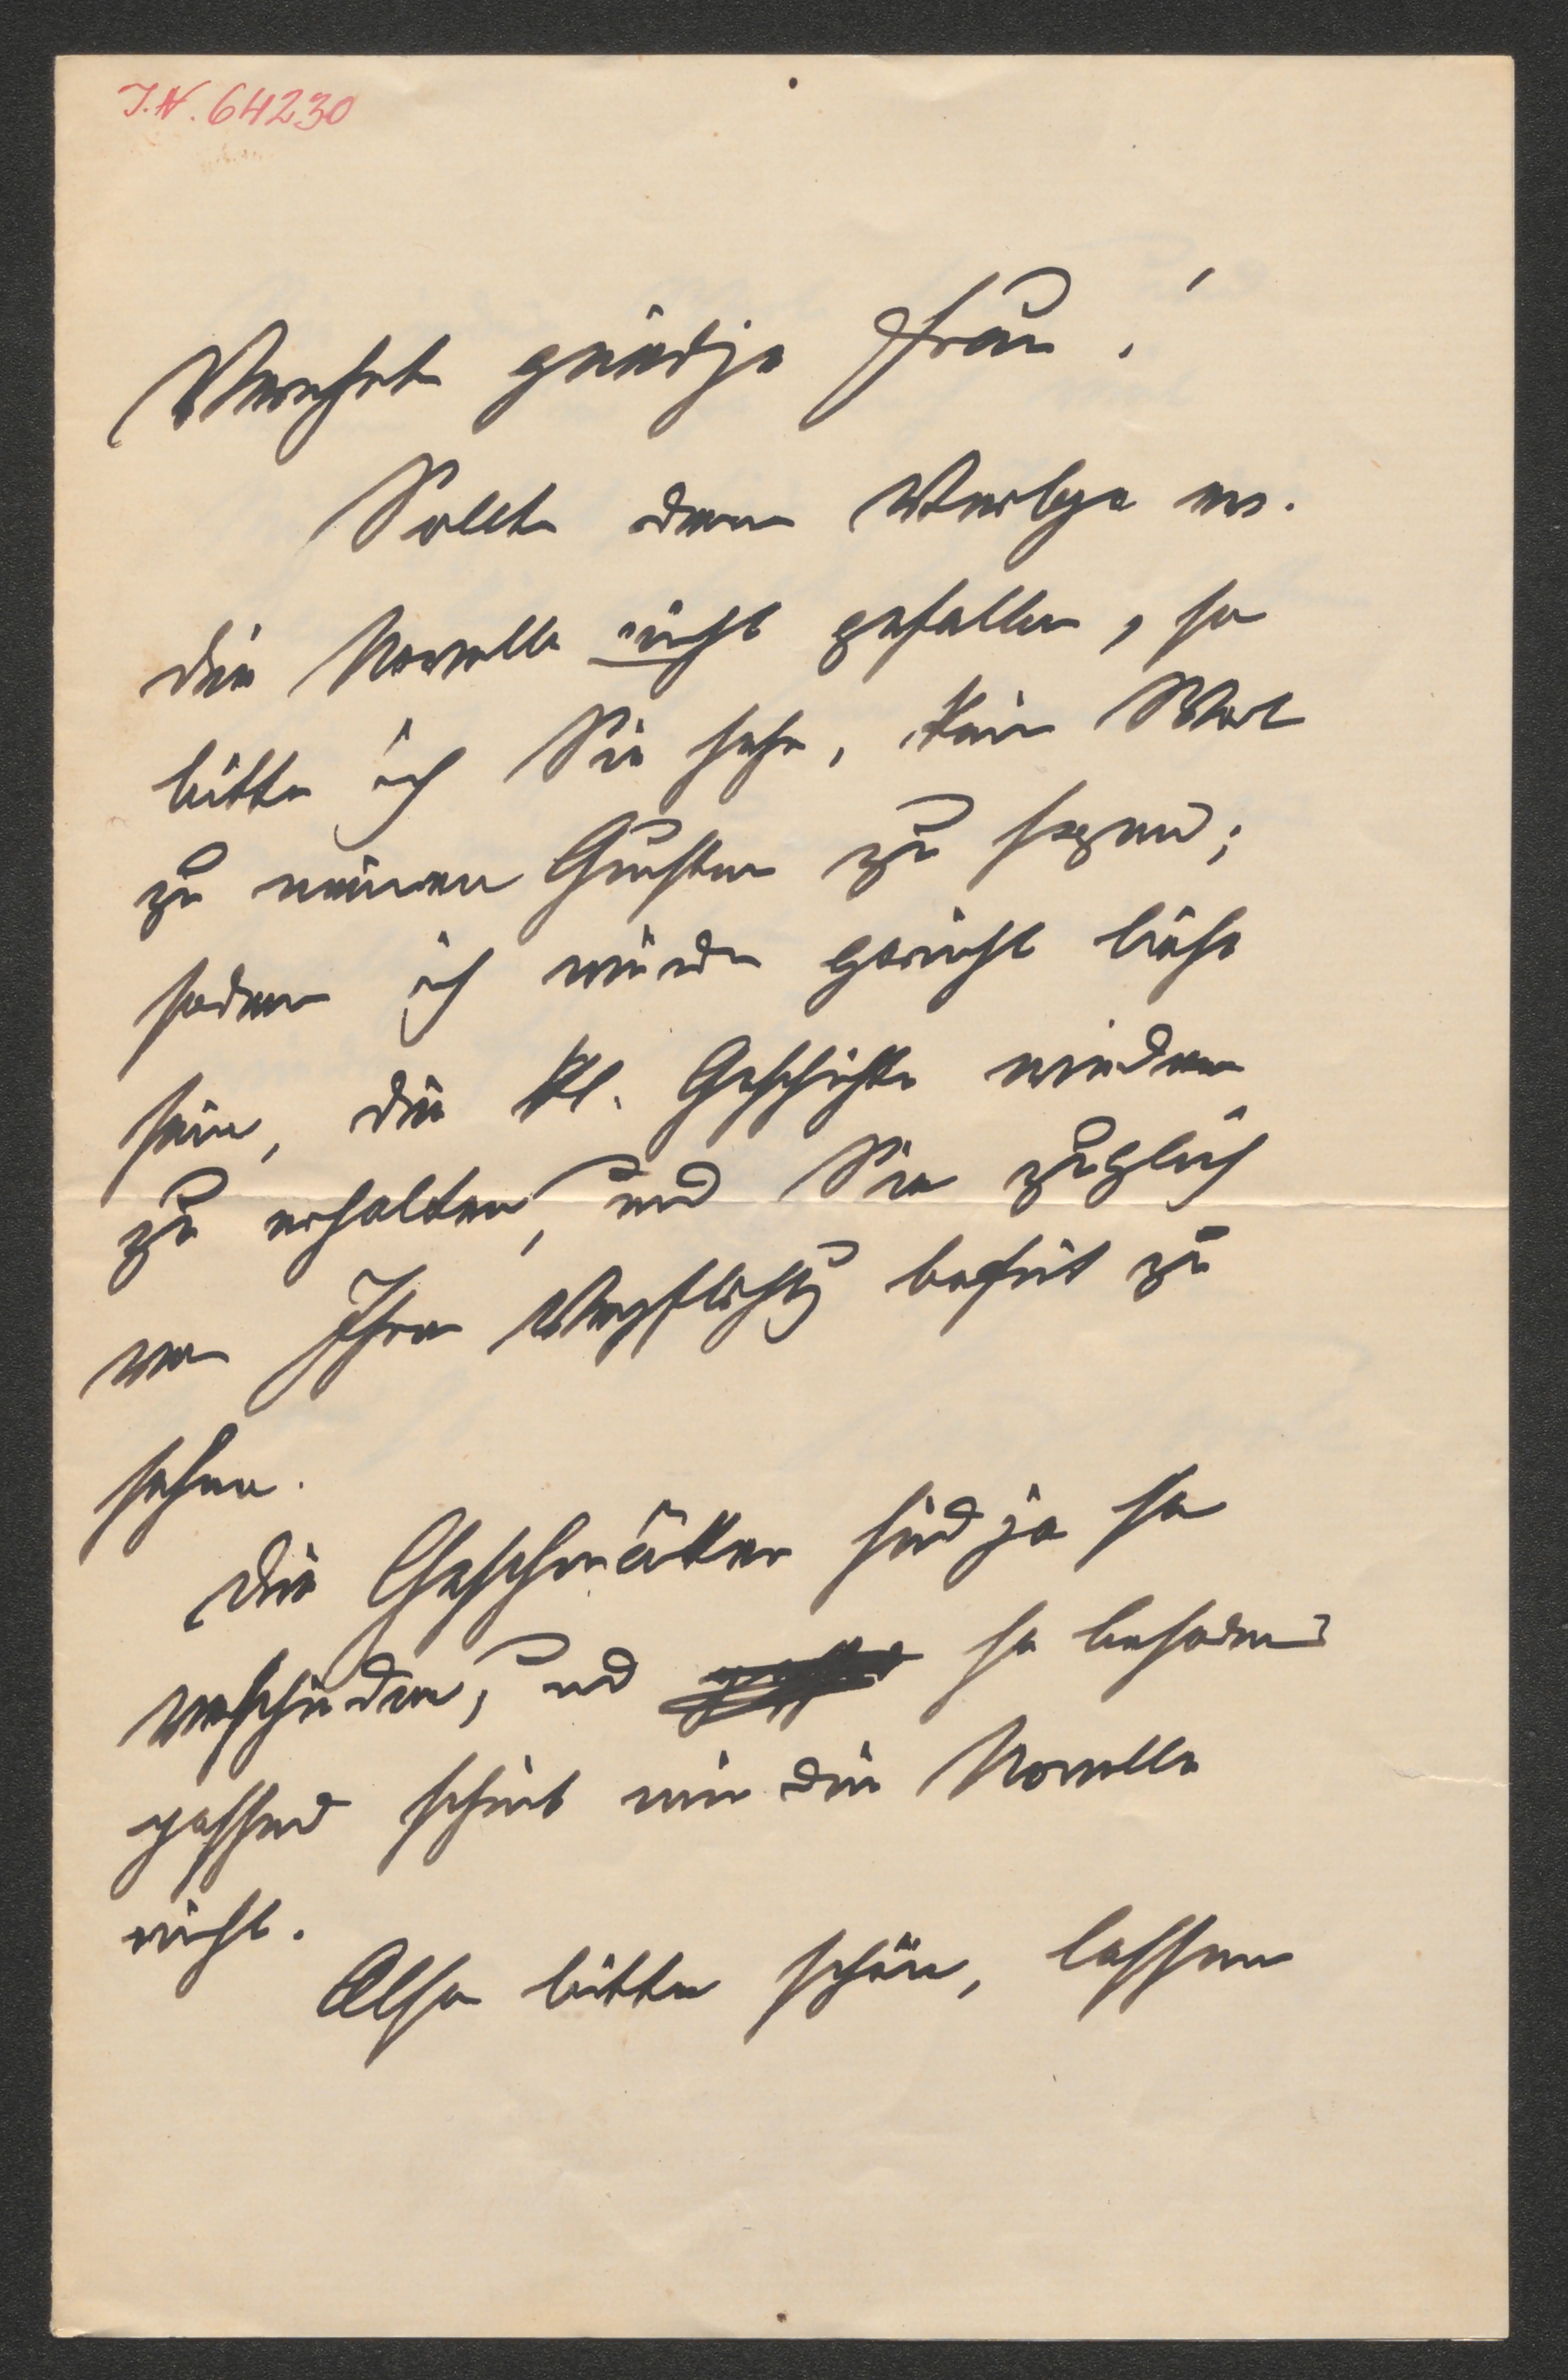 J.N. 64230
Verehrte gnädige Frau!
Sollte dem Verleger ev.
die Novelle nicht gefallen, so
bitte ich Sie sehr, kein Wort
zu meinen Gunsten zu sagen;
sodern ich würde gar nicht böse
sein, die kl. Geschichte wieder
zu erhalten, und Sie zugleich
von Ihrer Verpflichtg befreit zu
sehen.
Die Geschmäcker sind ja so
verschieden, und so besonders
passend scheint mir die Novelle
nicht.
Also bitte schön, lassen